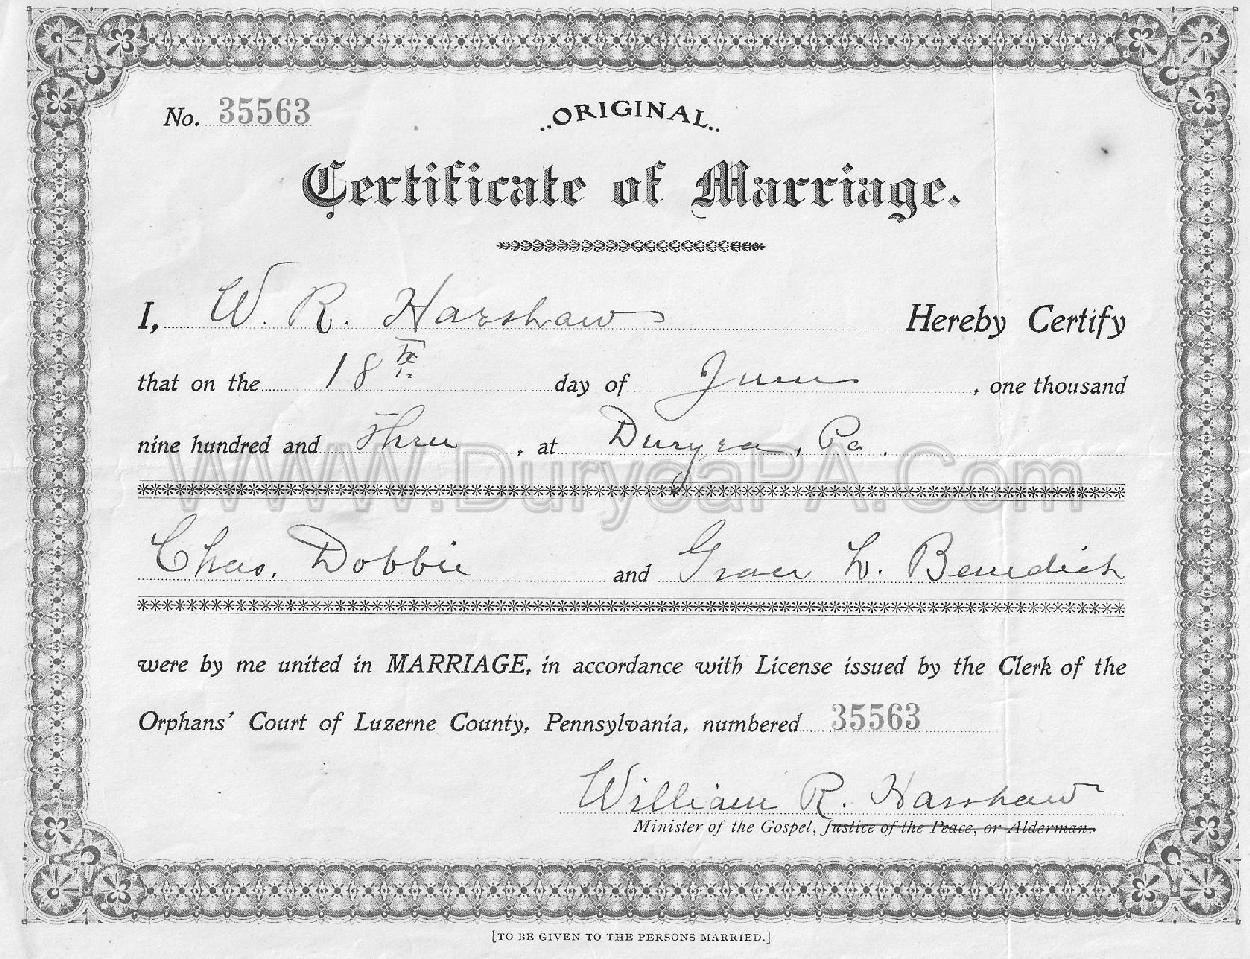 No. 35563
..ORIGINAL..
Certificate of Marriage.
I, W. R. Harshaw Hereby Certify
that on the 18th day of June, one thousand
nine hundred and Three, at Duryea, Pa.
WWW.DuryeaPA.Com
Chas. Dobbie and Grace L. Benedict
were by me united in MARRIAGE, in accordance with License issued by the Clerk of the
Orphans' Court of Luzerne County, Pennsylvania, numbered 35563
William R. Harshaw
Minister of the Gospel, Justice of the Peace, or Alderman.
[TO BE GIVEN TO THE PERSONS MARRIED.]